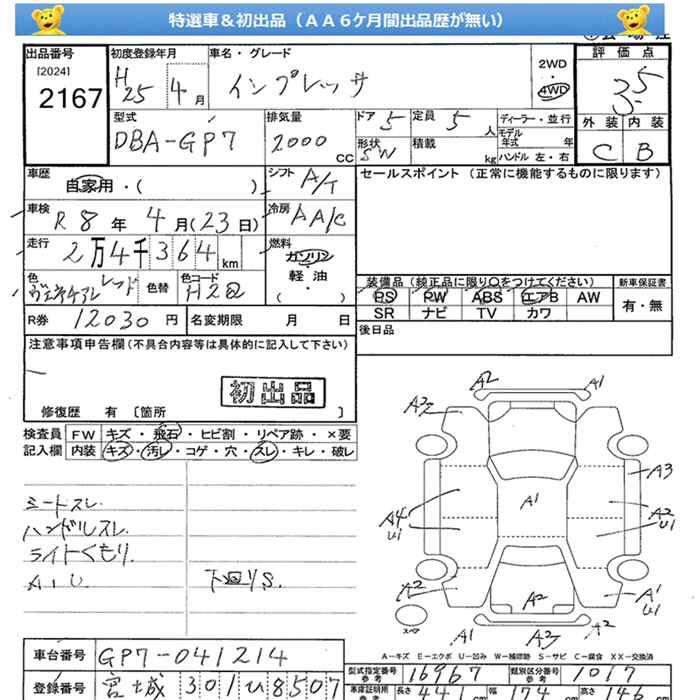 特選車＆初出品（ＡＡ６ケ月間出品歴が無い）
出品番号 初度登録年月 車名・グレード 評価点
[2024] 2167 H25年 4月 インプレッサ 2WD・4WD 3.5
型式 排気量 ドア 5 定員 5人 ディーラー・並行 外装 内装
DBA-GP7 2000cc 形状 SW 積載 kg モデル年式 年 C B
ハンドル 左・右
車歴 自家用・( ) シフト A/T セールスポイント（正常に機能するものに限ります）
車検 R8年 4月(23日) 冷房 AAC
走行 2万4千364km 燃料 ガソリン
軽油
( ・ )
色 ヴェネチアンレッド 色替 色コード H2Q 装備品（純正品に限り○をつけてください） 新車保証書
PS PW ABS エアB AW 有・無
R券 12030円 名変期限 月 日 SR ナビ TV カワ
注意事項申告欄（不具合内容等は具体的に記入して下さい） 後日品
初出品
修復歴 有 〔箇所 〕
検査員 FW キズ・飛石・ヒビ割・リペア跡・×要
記入欄 内装 キズ・汚レ・コゲ・穴・スレ・キレ・破レ
シートスレ
ハンドルスレ
ライトくもり.
A.U. 下回りS.
A2 A1
A3
A3
A1
A4 U1 A2 U1
A2 A2 A1 U1
スペア A1 A3 A2
A－キズ E－エクボ U－凹み W－補修跡 S－サビ C－腐食 XX－交換済
車台番号 GP7-041214 型式指定番号 参考 16967 類別区分番号 参考 1017
登録番号 宮城 301 ひ 8507 車庫証明所 参考 長さ 441cm 幅 174cm 高さ 146cm